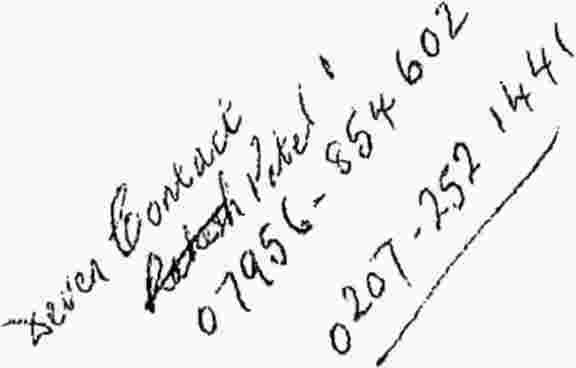 Deven Contact
Rakesh Patel
07956-854 602
0207-252 1441